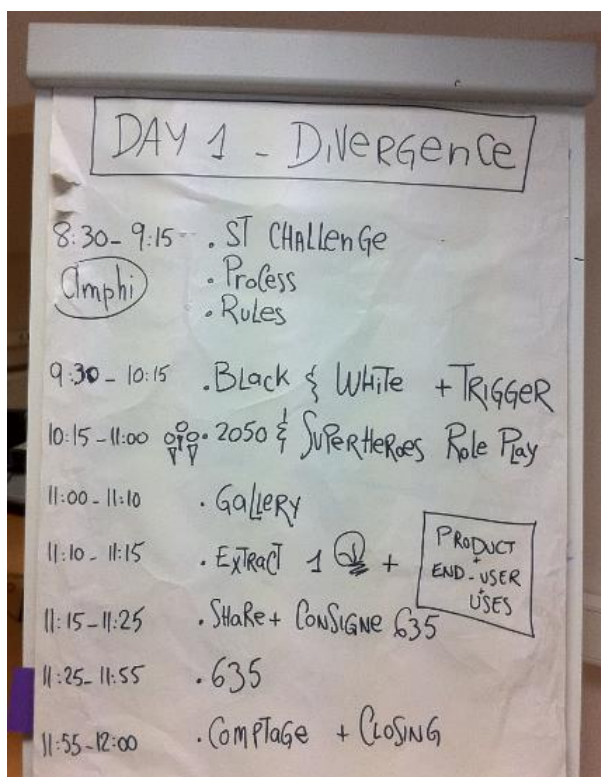 DAY 1 - DIVERGENCE
8:30 - 9:15 . ST CHALLENGE
Amphi . Process
. Rules
9:30 - 10:15 . BLACK & WHITE + TRIGGER
10:15 - 11:00 . 2050 & SUPERHEROES Role Play
11:00 - 11:10 . GALLERY
11:10 - 11:15 . EXTRACT 1 +
PRODUCT
+
END-USER
+
USES
11:15 - 11:25 . SHARE + CONSIGNE 635
11:25 - 11:55 . 635
11:55 - 12:00 . COMPTAGE + CLOSING